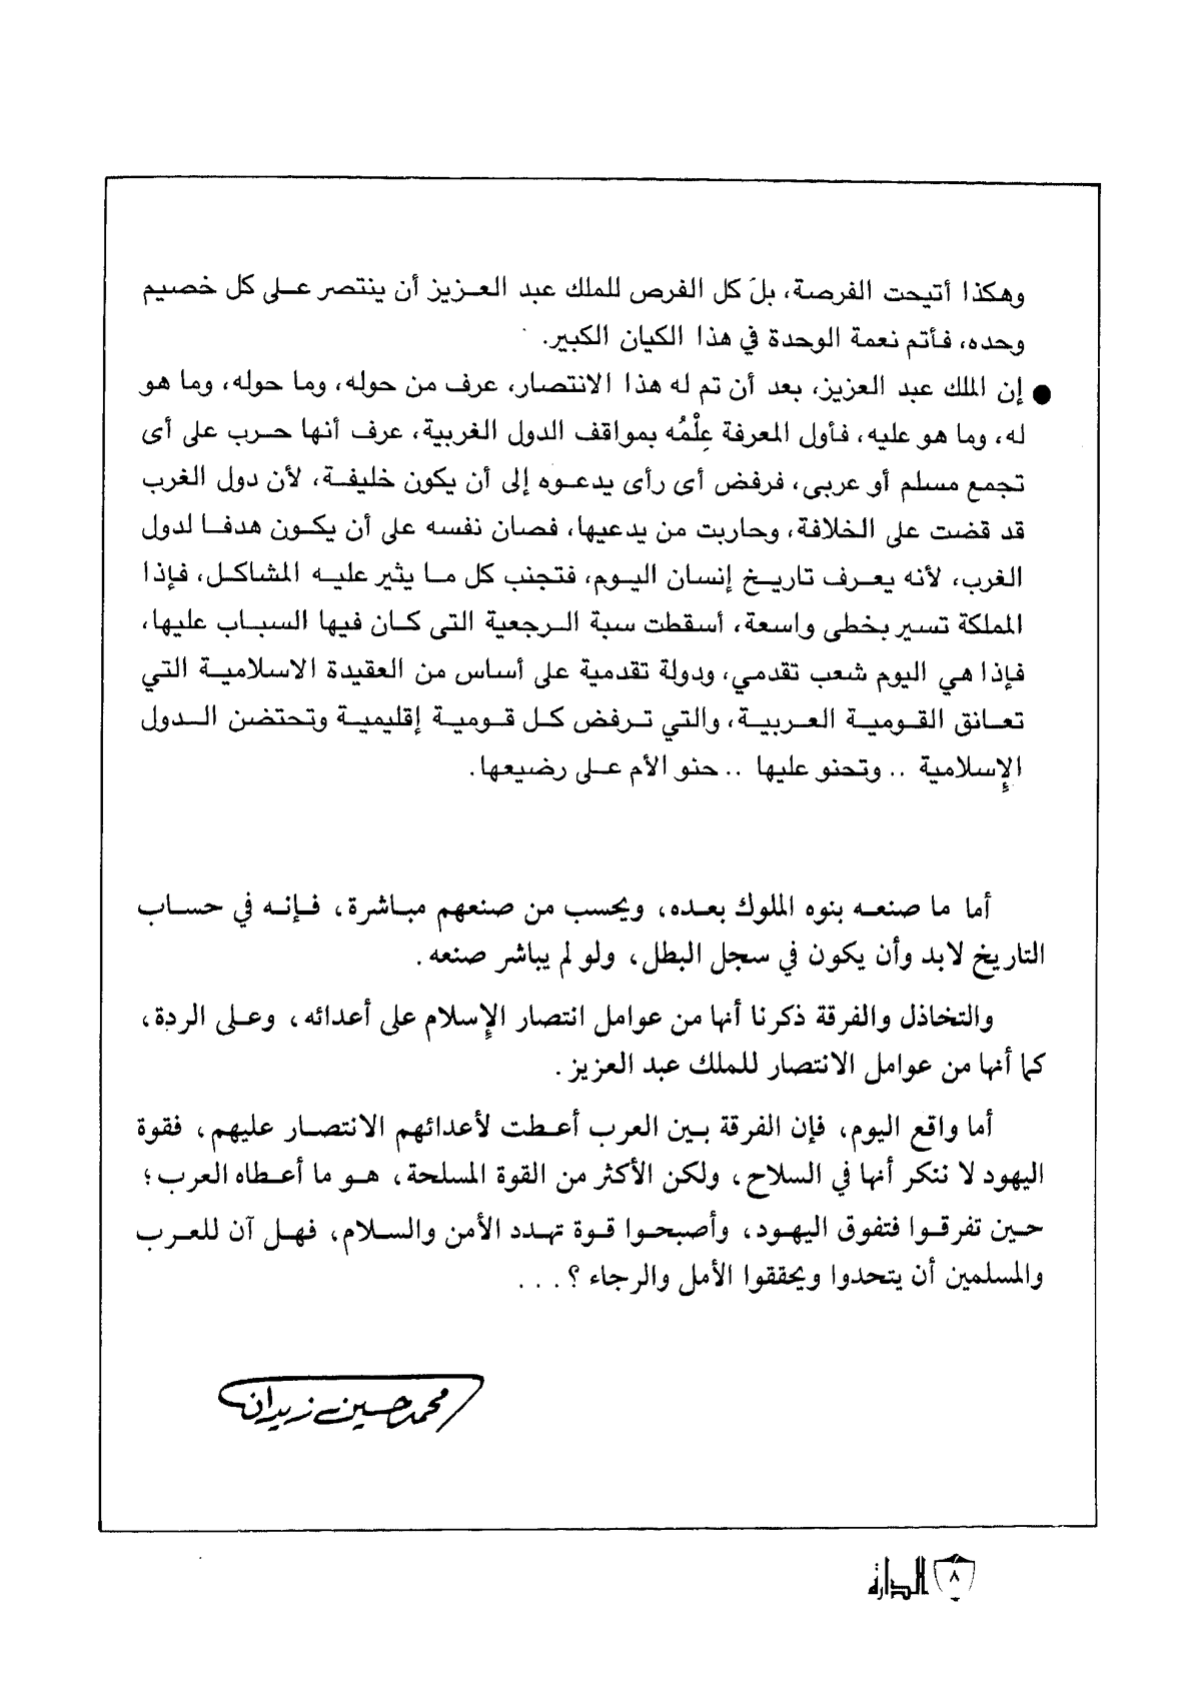 وهكذا أتيحت الفرصة، بلَ كل الفرص للملك عبد العـزيز أن ينتصر عـلى كل خصيم
وحده، فأتم نعمة الوحدة في هذا الكيان الكبير.
● إن الملك عبد العزيز، بعد أن تم له هذا الانتصار، عرف من حوله، وما حوله، وما هو
له، وما هو عليه، فأول المعرفة عِلْمُه بمواقف الدول الغربية، عرف أنها حرب على أى
تجمع مسلم أو عربى، فرفض أى رأى يدعوه إلى أن يكون خليفة، لأن دول الغرب
قد قضت على الخلافة، وحاربت من يدعيها، فصان نفسه على أن يكون هدفا لدول
الغرب، لأنه يعرف تاريخ إنسان اليوم، فتجنب كل ما يثير عليه المشاكل، فإذا
المملكة تسير بخطى واسعة، أسقطت سبة الرجعية التى كان فيها السباب عليها،
فإذا هي اليوم شعب تقدمي، ودولة تقدمية على أساس من العقيدة الاسلامية التي
تعانق القومية العربية، والتي ترفض كل قومية إقليمية وتحتضن الدول
الإسلامية .. وتحنو عليها .. حنو الأم على رضيعها.
أما ما صنعه بنوه الملوك بعده، ويحسب من صنعهم مباشرة، فإنه في حساب
التاريخ لابد وأن يكون في سجل البطل، ولو لم يباشر صنعه.
والتخاذل والفرقة ذكرنا أنها من عوامل انتصار الإسلام على أعدائه، وعلى الردة،
كما أنها من عوامل الانتصار للملك عبد العزيز.
أما واقع اليوم، فإن الفرقة بين العرب أعطت لأعدائهم الانتصار عليهم، فقوة
اليهود لا ننكر أنها في السلاح، ولكن الأكثر من القوة المسلحة، هو ما أعطاه العرب؛
حين تفرقوا فتفوق اليهود، وأصبحوا قوة تهدد الأمن والسلام، فهل آن للعرب
والمسلمين أن يتحدوا ويحققوا الأمل والرجاء ؟ . . .
محمد حسين زيدان
٨ الدارة